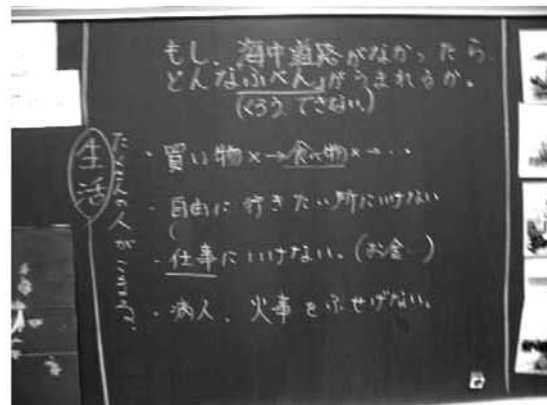 もし、海中道路がなかったら
どんな「ふべん」がうまれるか。
(くろう、できない)
生活
・買い物×→食べ物×→‥
・自由に行きたい所にいけない
・仕事にいけない。(お金‥)
・病人、火事をふせげない。